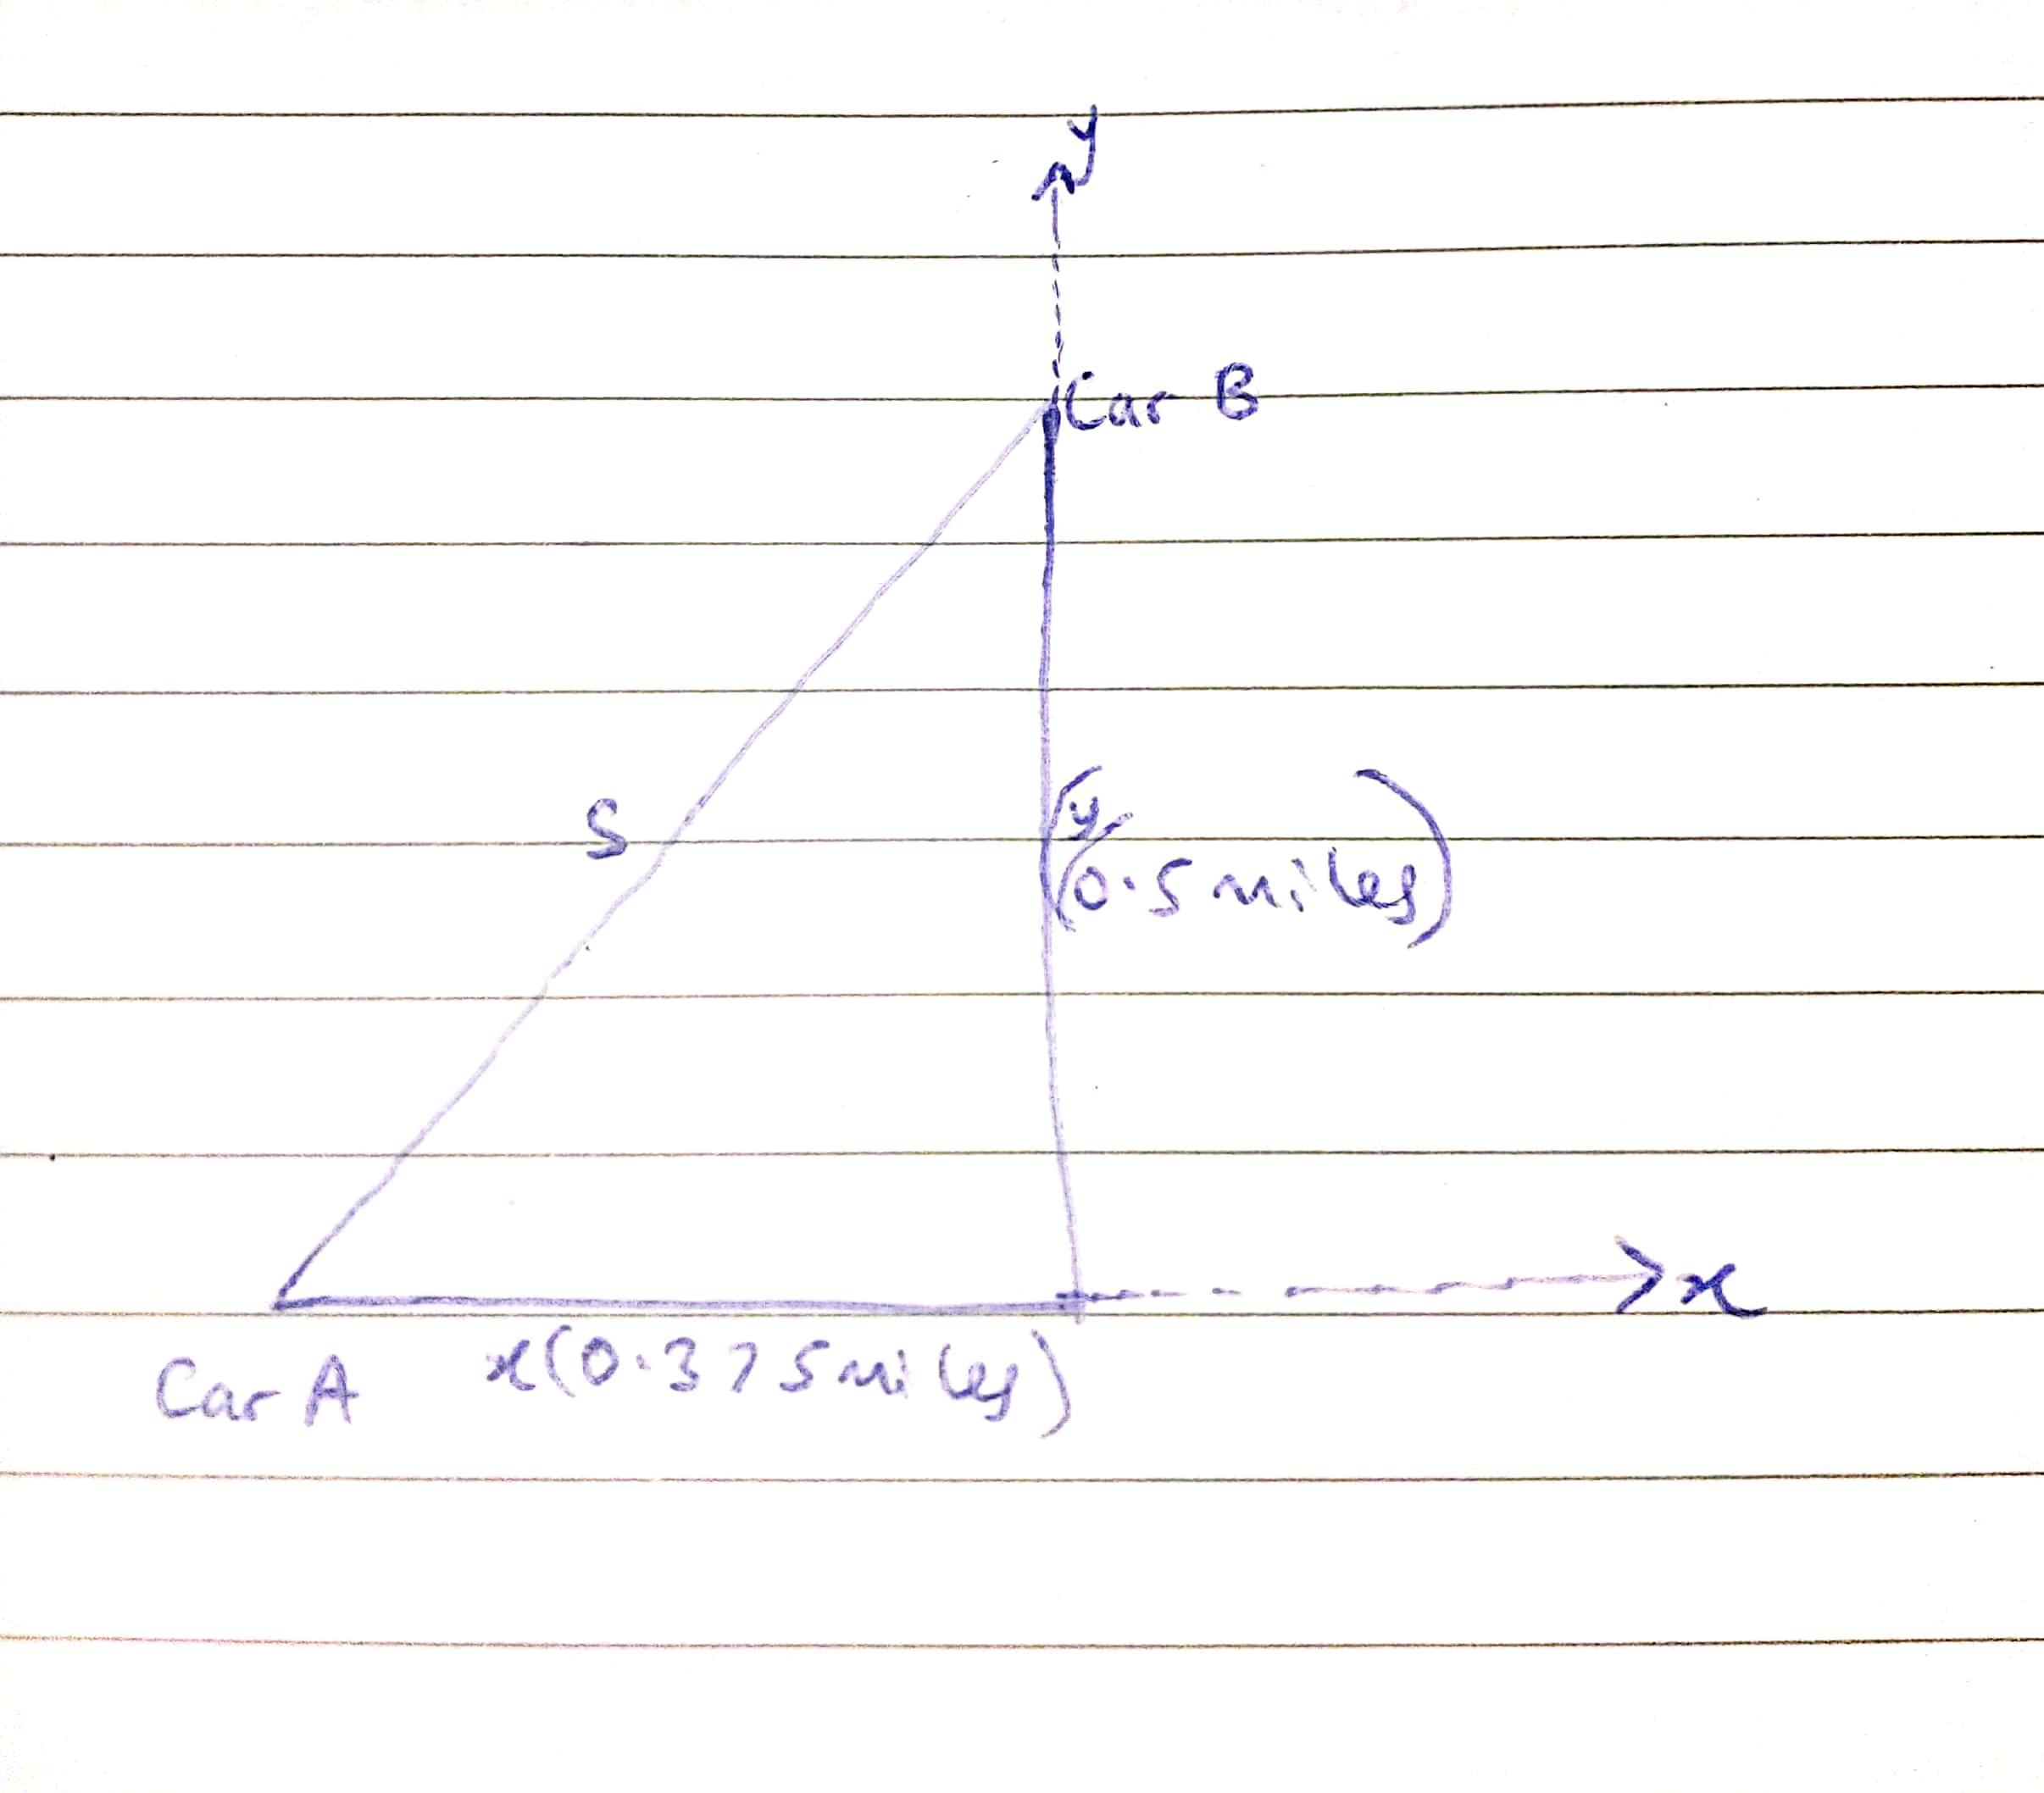 y
Car B
S
y
(0.5 miles)
x
Car A
x(0.375miles)